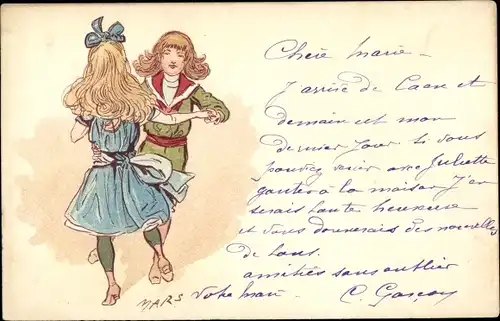 Chère Marie -
J'arrive de Caen et
demain est mon
dernier jour si vous
pouviez venir avec Juliette
goûter à la maison J'en
serais toute heureuse
et vous donnerais des nouvelles
de tous.
amitiés sans oublier
votre mari - C. Gascon
MARS